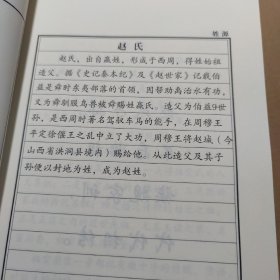 姓源
赵氏
赵氏，出自嬴姓，形成于西周，得姓始祖
造父。据《史记秦本纪》及《赵世家》记载伯
益是舜时东夷部落的首领，因帮助禹治水有功，
又为舜驯服鸟兽被舜赐姓嬴氏。造父为伯益9世
孙，是西周时著名驾驭车马的能手，在周穆王
平定徐偃王之乱中立了大功，周穆王将赵城（今
山西省洪洞县境内）赐给他。从此造父及其子
孙便以封地为姓，成为赵姓。